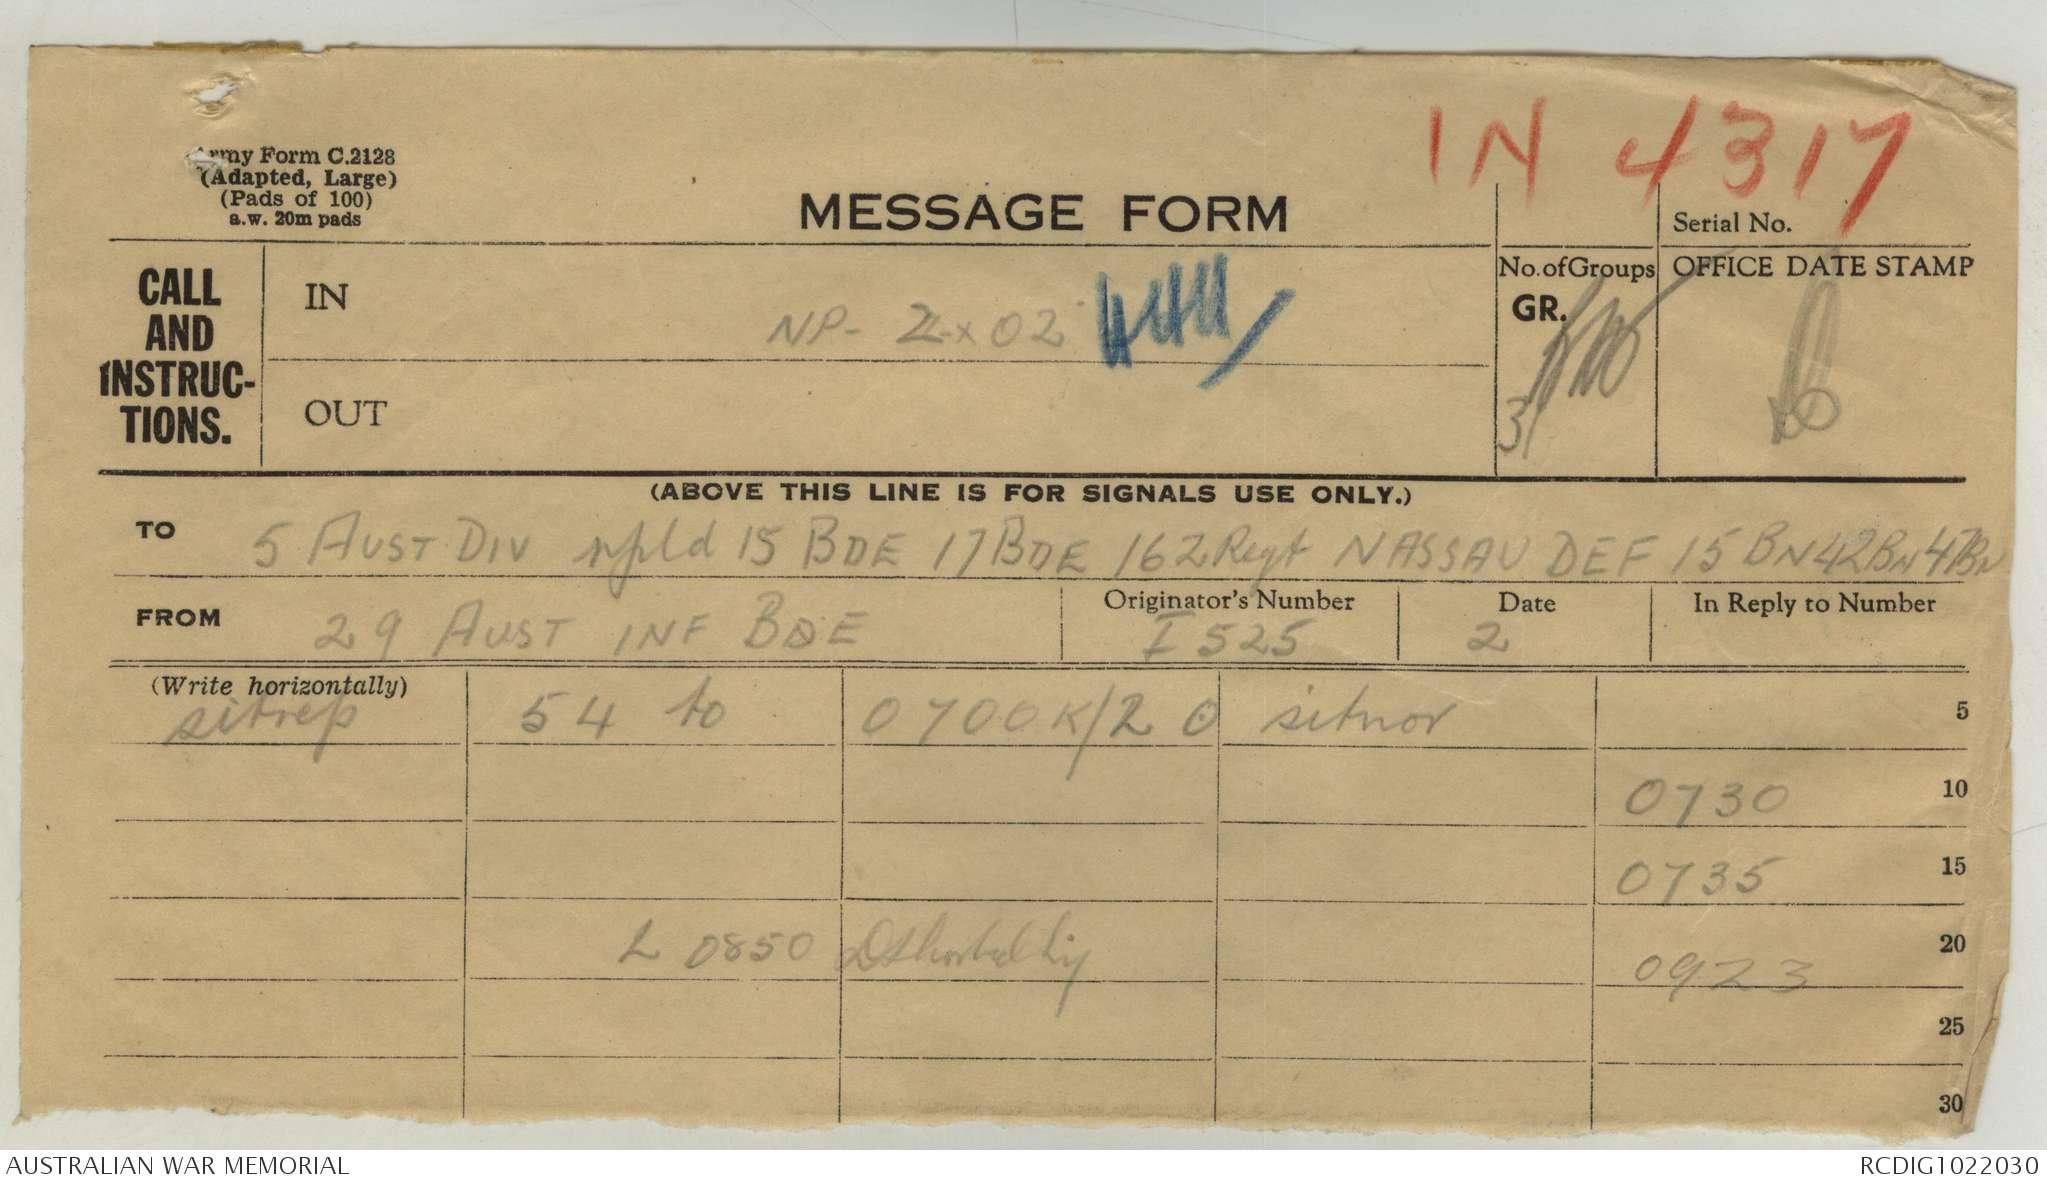 IN 4317
Army Form C.2128
(Adapted, Large)
(Pads of 100)
a.w. 20m pads
MESSAGE FORM
Serial No.
CALL
AND
INSTRUC-
TIONS.
IN
NP- 02
No. of Groups
GR.
31
OFFICE DATE STAMP
OUT
(ABOVE THIS LINE IS FOR SIGNALS USE ONLY.)
TO 5 AUST DIV rptd 15 BDE 17 BDE 162 Regt NASSAU DEF 15 BN 42 BN 47 BN
FROM 29 AUST INF BDE
Originator's Number I 525
Date 2
In Reply to Number
(Write horizontally)
sitrep 54 to 0700K/2 ⊙ sitnor 5
0730 10
0735 15
L 0850 20
0923
25
30
AUSTRALIAN WAR MEMORIAL RCDIG1022030